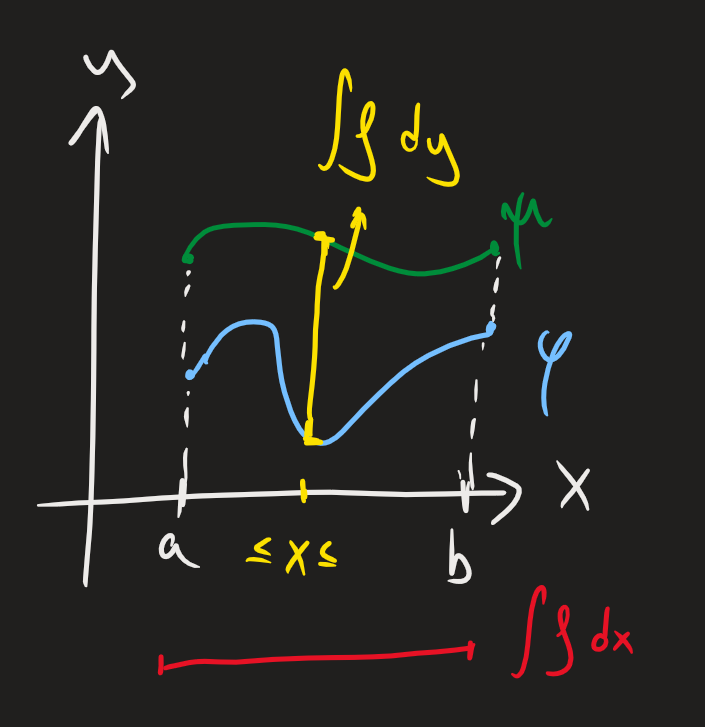 y
∫ f dy
ψ
φ
x
a ≤ x ≤ b
∫ f dx